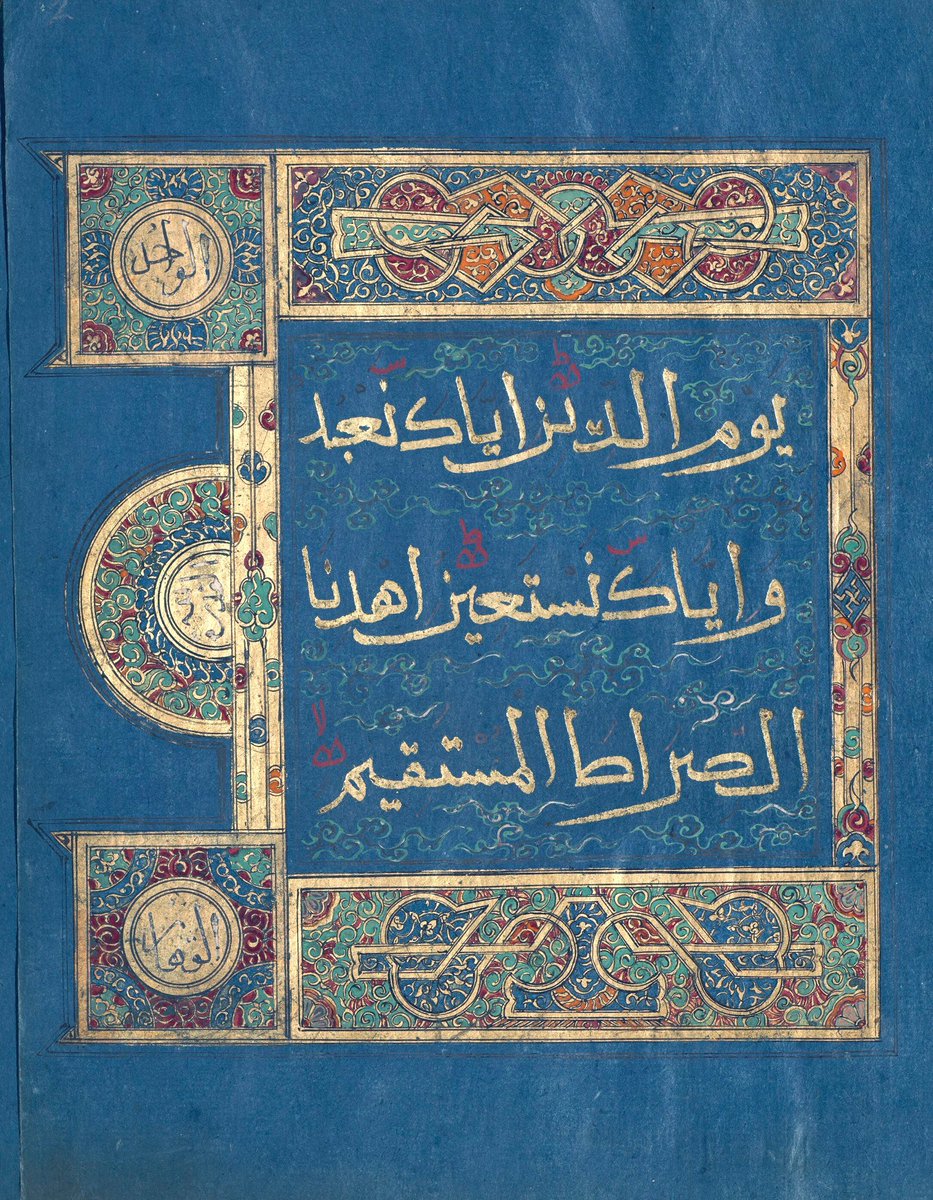 الواحد
يوم الدين اياك نعبد
واياك نستعين اهدنا
الصراط المستقيم
لا
القهار